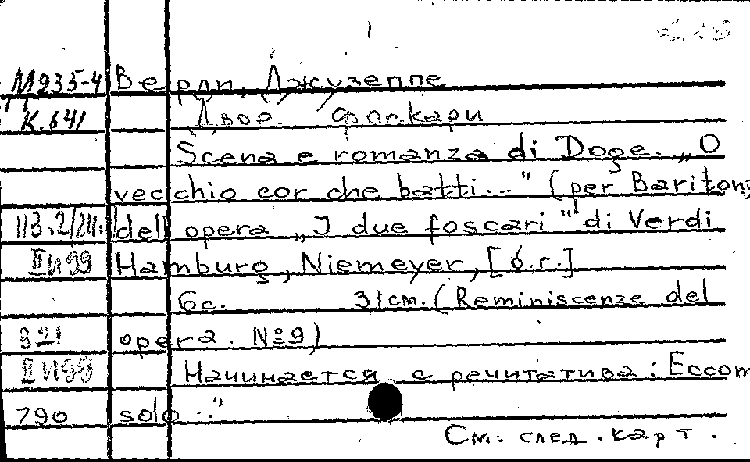 М235-4 Верди, Джузеппе
К.641 Двое Фоскари
Scena e romanza di Doge. „O
vecchio cor che batti..." (per Bariton,
dell opera „J due foscari" di Verdi
II И 99 Hamburg, Niemeyer, [б.г.]
6с. 31см. (Reminiscenze del
921 opera. №9)
II И 99 Начинается с речитатива: Eccom
790 solo.."
См. след. карт.